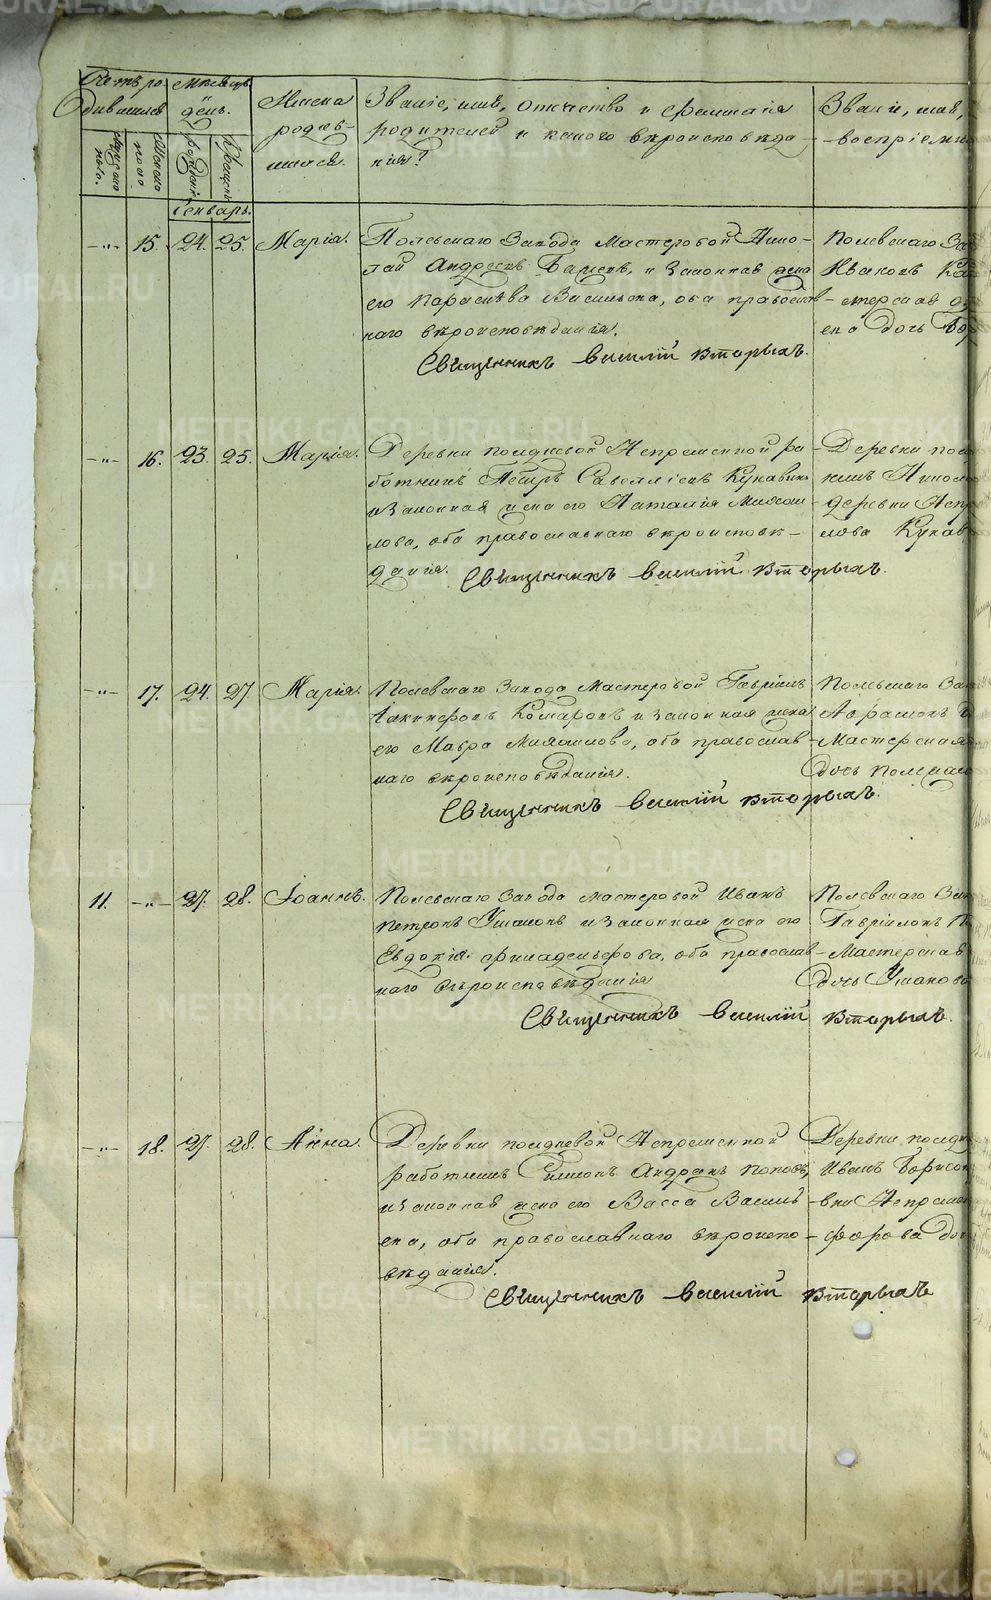 Счетъ ро
дившихся
Мужеска
полу.
Женска
полу
Мѣсяцъ
и
день.
рожденія
Крещенія
Генварь.
Имена
родив-
шихся.
Званіе, имя, отчество и фамилія
родителей и какого вѣроисповѣда
нія?
Званіе, имя,
воспріемни
-"- 15. 24. 25. Марія.
Полевскаго Завода Мастеровой
Андреевъ и Законная жена
его Параскева Васильева, оба православ-
наго вѣроисповѣданія.
Священникъ Василій Вторыхъ.
Полевскаго За
Иваковъ
-стерская
ева дочь
-"- 16. 23. 25. Марія.
Деревни полдневой Непременной ра
ботникъ Петръ Савеліевъ Кукавинъ
и Законная жена его Наталія Михаи
лова, оба православнаго вѣроисповѣ-
данія.
Священникъ Василій Вторыхъ.
Деревни пол
деревни Непр
лова Кукав
-"- 17. 24. 27. Марія.
Полевскаго Завода Мастеровой Гавріилъ
Іакинфовъ Комаровъ и Законная жена
его Мавра Михаилова, оба православ-
наго вѣроисповѣданія.
Священникъ Василій Вторыхъ.
Полевскаго Зав
-Мастерская
дочь
11. -"- 27. 28. Іоаннъ.
Полевскаго Завода мастеровой Иванъ
Петровъ Ушаковъ и Законная жена его
Евдокія Филадельфова, оба православ-
наго вѣроисповѣданія
Священникъ Василій Вторыхъ.
Полевскаго Зав
Гавріиловъ П
-Мастерская
дочь Ушаково
-"- 18. 27. 28. Анна.
Деревни полдневой Непременной
работникъ Симеонъ Андреевъ Поповъ,
и законная жена его Васса Василь
ева, оба православнаго вѣроиспо-
вѣданія.
Священникъ Василій Вторыхъ
Деревни полдн
Иванъ Борисов
-вни Непремен
-форова доч
METRIKI.GASO-URAL.RU